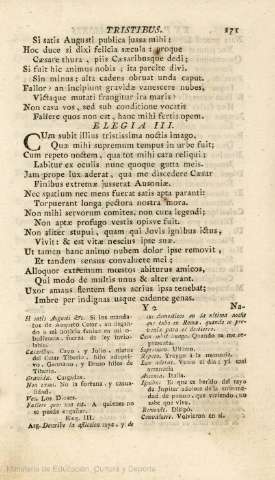 TRISTIBUS. 171
Si satis Augusti publica jussa mihi;
Hoc duce si dixi felicia sæcula; proque
Cæsare thura, piis Cæsaribusque dedi;
Si fuit hic animus nobis; ita parcite divi.
Sin minus; alta cadens obruat unda caput.
Fallor? an incipiunt gravidæ vanescere nubes,
Victaque mutati frangitur ira maris?
Non casu vos, sed sub conditione vocatis
Fallere quos non est, hanc mihi fertis opem.
ELEGIA III.
CUm subit illius tristissima noctis imago,
Quæ mihi supremum tempus in urbe fuit;
Cum repeto noctem, qua tot mihi cara reliqui;
Labitur ex oculis nunc quoque gutta meis.
Jam prope lux aderat, qua me discedere Cæsar
Finibus extremæ jusserat Ausoniæ.
Nec spatium nec mens fuerat satis apta paranti:
Torpuerant longa pectora nostra mora.
Non mihi servorum comites, non cura legendi;
Non apta profugo vestis opisve fuit.
Non aliter stupui, quam qui Jovis ignibus ictus,
Vivit: & est vitæ nescius ipse suæ.
Ut tamen hanc animo nubem dolor ipse removit,
Et tandem sensus convaluere mei;
Alloquor extremum mœstos abiturus amicos,
Qui modo de multis unus & alter erant.
Uxor amans flentem flens acrius ipsa tenebat;
Imbre per indignas usque cadente genas.
Y 2 Na-
Si satis Augusti &c. Si los manda-
Cæsaribus. Cayo, y Julio, nietos
del Cesar Tiberio, hijo
Germanico, y Druso hijos de
Tiberio.
Gravidæ. Cargadas.
Non casu. No la fortuna, y casua-
lidad.
Vos. Los Dioses.
Fallere quos non est. A quienes no
se puede engañar.
Eleg. III.
Arg. Describe la afliccion suya, y de
sus domesticos en la ultima noche
que
Supremum. Ultimo.
Repeto. Traygo á la memoria.
Ausoniæ. Italia.
Removit. Disipó.
Convaluere. Volvieron en sí.
Ministerio de Educación, Cultura y Deporte